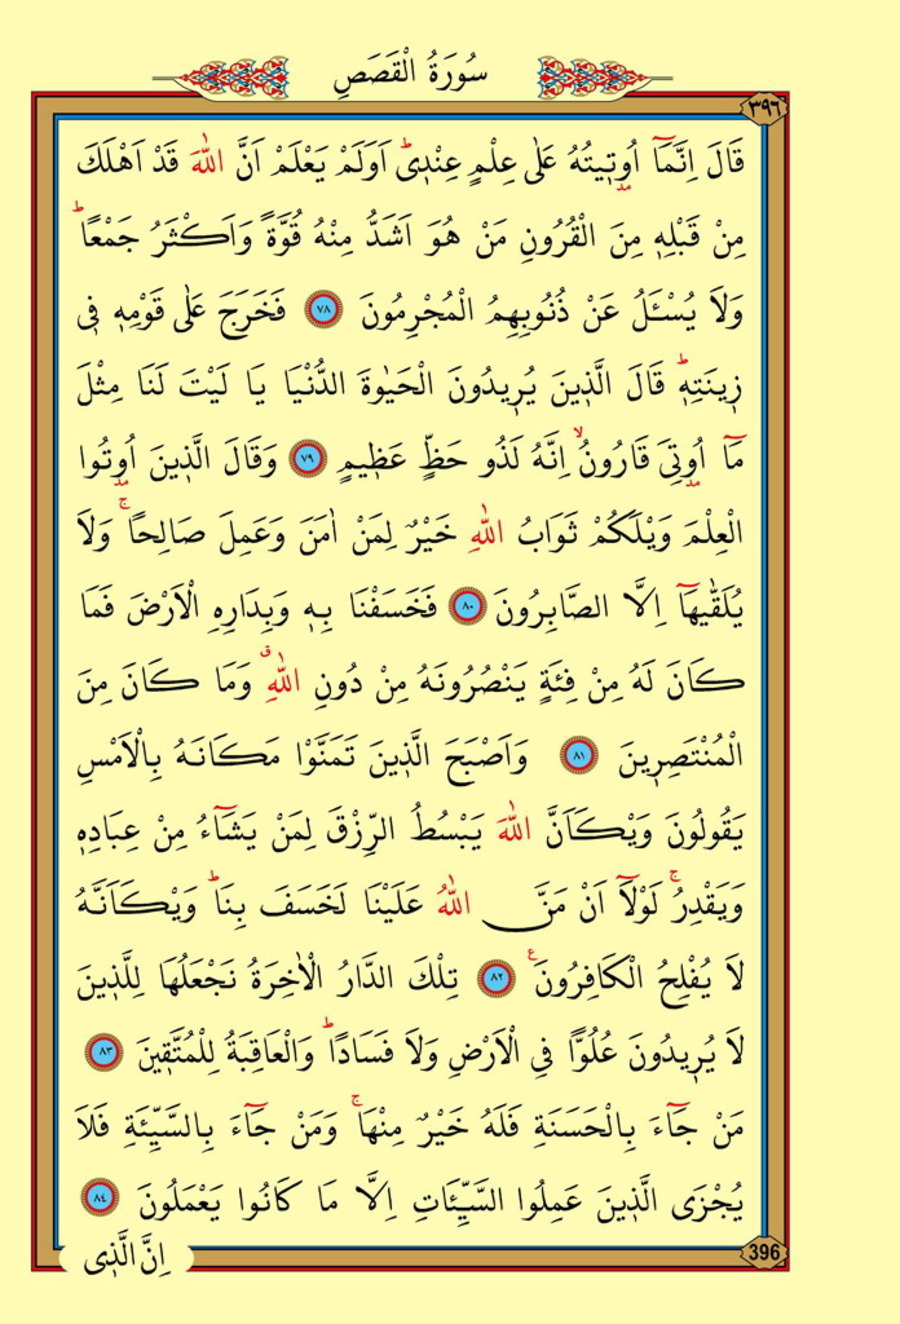 سُورَةُ الْقَصَصِ
٣٩٦
قَالَ اِنَّمَٓا اُو۫ت۪يتُهُ عَلٰى عِلْمٍ عِنْد۪ىۜ اَوَلَمْ يَعْلَمْ اَنَّ اللّٰهَ قَدْ اَهْلَكَ
مِنْ قَبْلِه۪ مِنَ الْقُرُونِ مَنْ هُوَ اَشَدُّ مِنْهُ قُوَّةً وَاَكْثَرُ جَمْعًاۜ
وَلَا يُسْـَٔلُ عَنْ ذُنُوبِهِمُ الْمُجْرِمُونَ ﴿٧٨﴾ فَخَرَجَ عَلٰى قَوْمِه۪ ف۪ى
ز۪ينَتِه۪ۜ قَالَ الَّذ۪ينَ يُر۪يدُونَ الْحَيٰوةَ الدُّنْيَا يَا لَيْتَ لَنَا مِثْلَ
مَٓا اُو۫تِىَ قَارُونُۙ اِنَّهُ لَذُو حَظٍّ عَظ۪يمٍ ﴿٧٩﴾ وَقَالَ الَّذ۪ينَ اُو۫تُوا
الْعِلْمَ وَيْلَكُمْ ثَوَابُ اللّٰهِ خَيْرٌ لِمَنْ اٰمَنَ وَعَمِلَ صَالِحًاۚ وَلَا
يُلَقّٰيهَٓا اِلَّا الصَّابِرُونَ ﴿٨٠﴾ فَخَسَفْنَا بِه۪ وَبِدَارِهِ الْاَرْضَ فَمَا
كَانَ لَهُ مِنْ فِئَةٍ يَنْصُرُونَهُ مِنْ دُونِ اللّٰهِۗ وَمَا كَانَ مِنَ
الْمُنْتَصِر۪ينَ ﴿٨١﴾ وَاَصْبَحَ الَّذ۪ينَ تَمَنَّوْا مَكَانَهُ بِالْاَمْسِ
يَقُولُونَ وَيْكَاَنَّ اللّٰهَ يَبْسُطُ الرِّزْقَ لِمَنْ يَشَٓاءُ مِنْ عِبَادِه۪
وَيَقْدِرُۚ لَوْلَٓا اَنْ مَنَّ اللّٰهُ عَلَيْنَا لَخَسَفَ بِنَاۜ وَيْكَاَنَّهُ
لَا يُفْلِحُ الْكَافِرُونَ۟ ﴿٨٢﴾ تِلْكَ الدَّارُ الْاٰخِرَةُ نَجْعَلُهَا لِلَّذ۪ينَ
لَا يُر۪يدُونَ عُلُوًّا فِى الْاَرْضِ وَلَا فَسَادًاۜ وَالْعَاقِبَةُ لِلْمُتَّق۪ينَ ﴿٨٣﴾
مَنْ جَٓاءَ بِالْحَسَنَةِ فَلَهُ خَيْرٌ مِنْهَاۚ وَمَنْ جَٓاءَ بِالسَّيِّئَةِ فَلَا
يُجْزَى الَّذ۪ينَ عَمِلُوا السَّيِّئَاتِ اِلَّا مَا كَانُوا يَعْمَلُونَ ﴿٨٤﴾
396
اِنَّ الَّذ۪ى